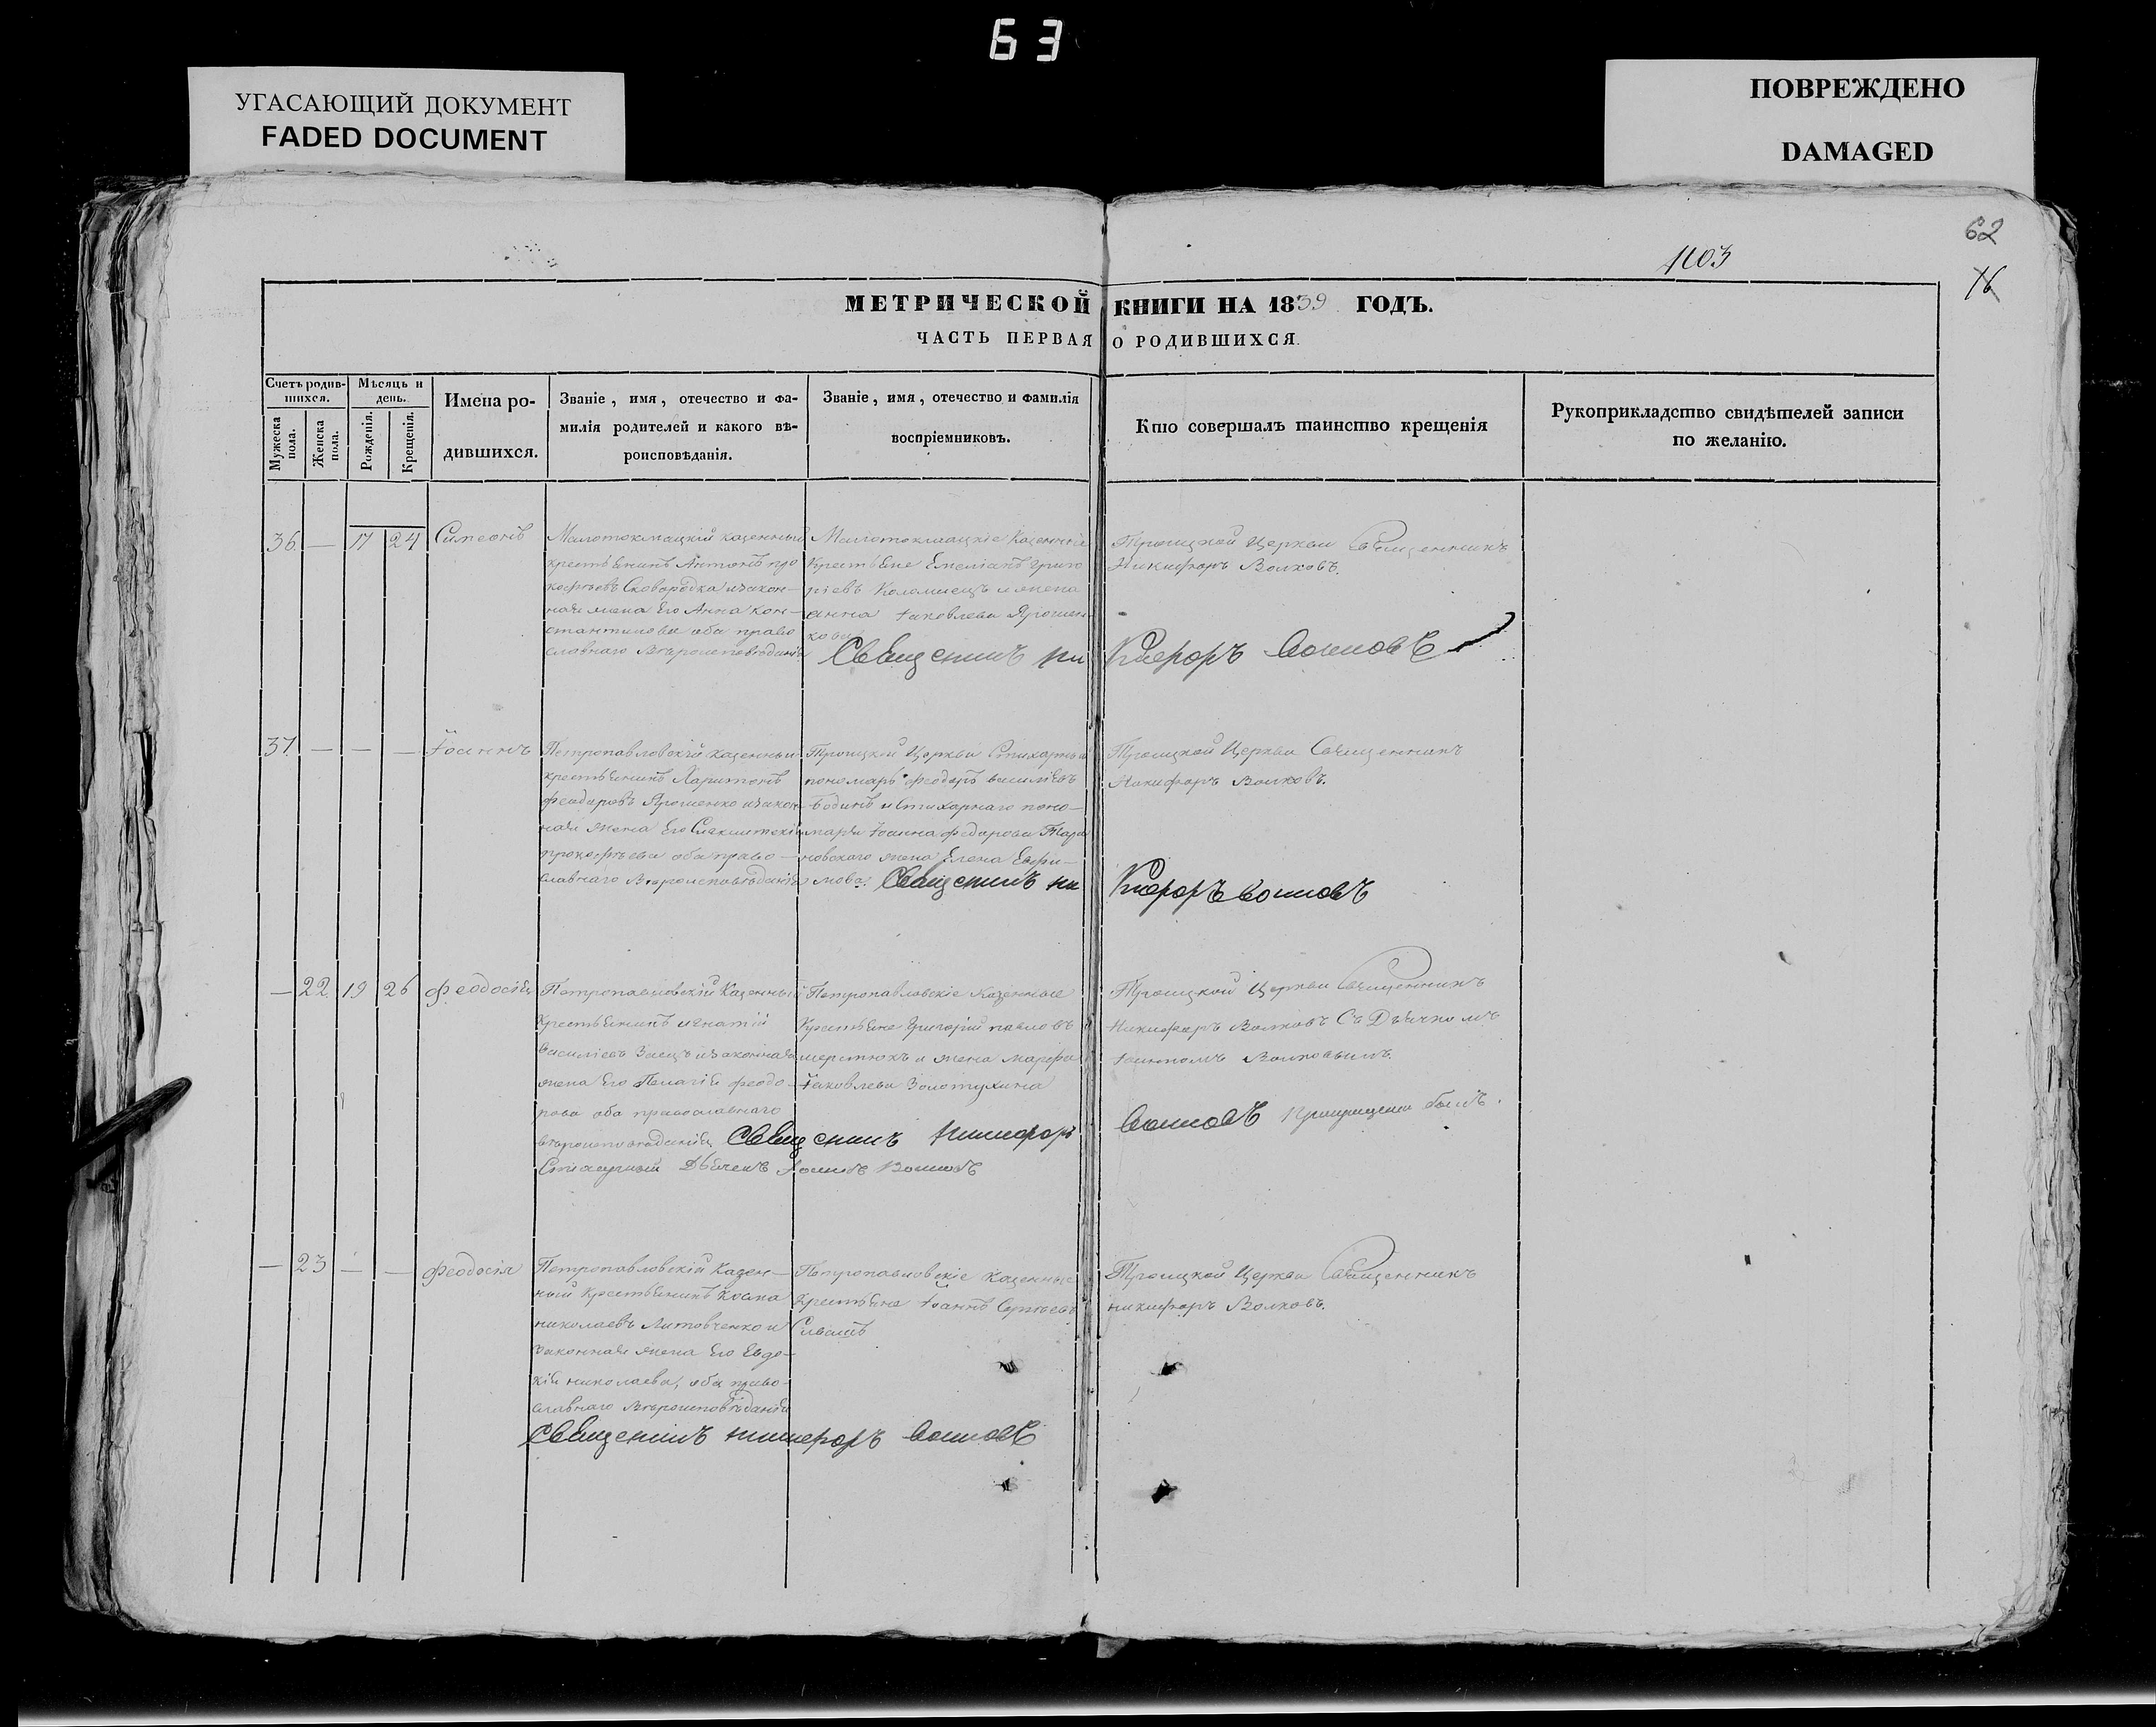 63
УГАСАЮЩИЙ ДОКУМЕНТ
FADED DOCUMENT
ПОВРЕЖДЕНО
DAMAGED
62
1103
16
МЕТРИЧЕСКОЙ КНИГИ НА 1839 ГОДЪ.
ЧАСТЬ ПЕРВАЯ О РОДИВШИХСЯ.
Счетъ родив-
шихся.
Мужеска пола.
Женска пола.
Мѣсяць и
день.
Рожденія.
Крещенія.
Имена ро-
дившихся.
Званіе, имя, отечество и фа-
милія родителей и какого вѣ-
роисповѣданія.
Званіе, имя, отечество и фамилія
воспріемниковъ.
Кто совершалъ таинство крещенія
Рукоприкладство свидѣтелей записи
по желанію.
36 — 17 24 Симеонъ
Малотокмацкій казенный
крестьянинъ Антонъ про
кофьевъ Сковородка изакон-
ная жена Его Анна кон-
стантинова оба право
славнаго Вѣроисповѣданія
Малотокмацкіе Казенніе
Крестьяне Емеліанъ григо
ріевъ Коломиецъ и жена
анна яковлева Ярошен
кова
Троицкой Церкви Священникъ
Никифоръ Волковъ.
Священникъ Никифоръ Волковъ
37 — — — Іоаннъ
Петропавловскій казенный
крестьянинъ Харитонъ
феодоровъ Ярошенко изакон
ная жена Его
прокофьева оба право-
славнаго Вѣроисповѣданія
Троицкой Церкви Стихарный
пономарь феодоръ василіевъ
и Стихарнаго поно-
маря Іоанна федорова Тара
новскаго жена Елена Евфи-
мова
Троицкой Церкви Священникъ
Никифоръ Волковъ.
Священникъ Никифоръ Волковъ
— 22 19 26 Феодосія
Петропавловскій Казенный
Крестьянинъ игнатій
Василіевъ Заецъ изаконная
жена Его Пелагія феодо-
рова оба православнаго
вѣроисповѣданія
Петропавловскіе Казенные
Крестьяне Григорій павловъ
шерстюкъ и жена марфа
Яковлева Золотухина
Троицкой Церкви Священникъ
Никифоръ Волковъ Съ Дьячкомъ
Іоанномъ Волковымъ.
Священникъ Никифоръ Волковъ
Стихарный Дьячекъ Іоаннъ Волковъ
— 23 — — Феодосія
Петропавловскій Казен-
ный Крестьянинъ Косма
николаевъ Литовченко и
законная жена Его Евдо-
кія николаева, оба право-
славнаго Вѣроисповѣданія
Петропавловскіе Казенные
Крестьяне Іоаннъ Сергѣевъ
Троицкой Церкви Священникъ
никифоръ Волковъ.
Священникъ Никифоръ Волковъ